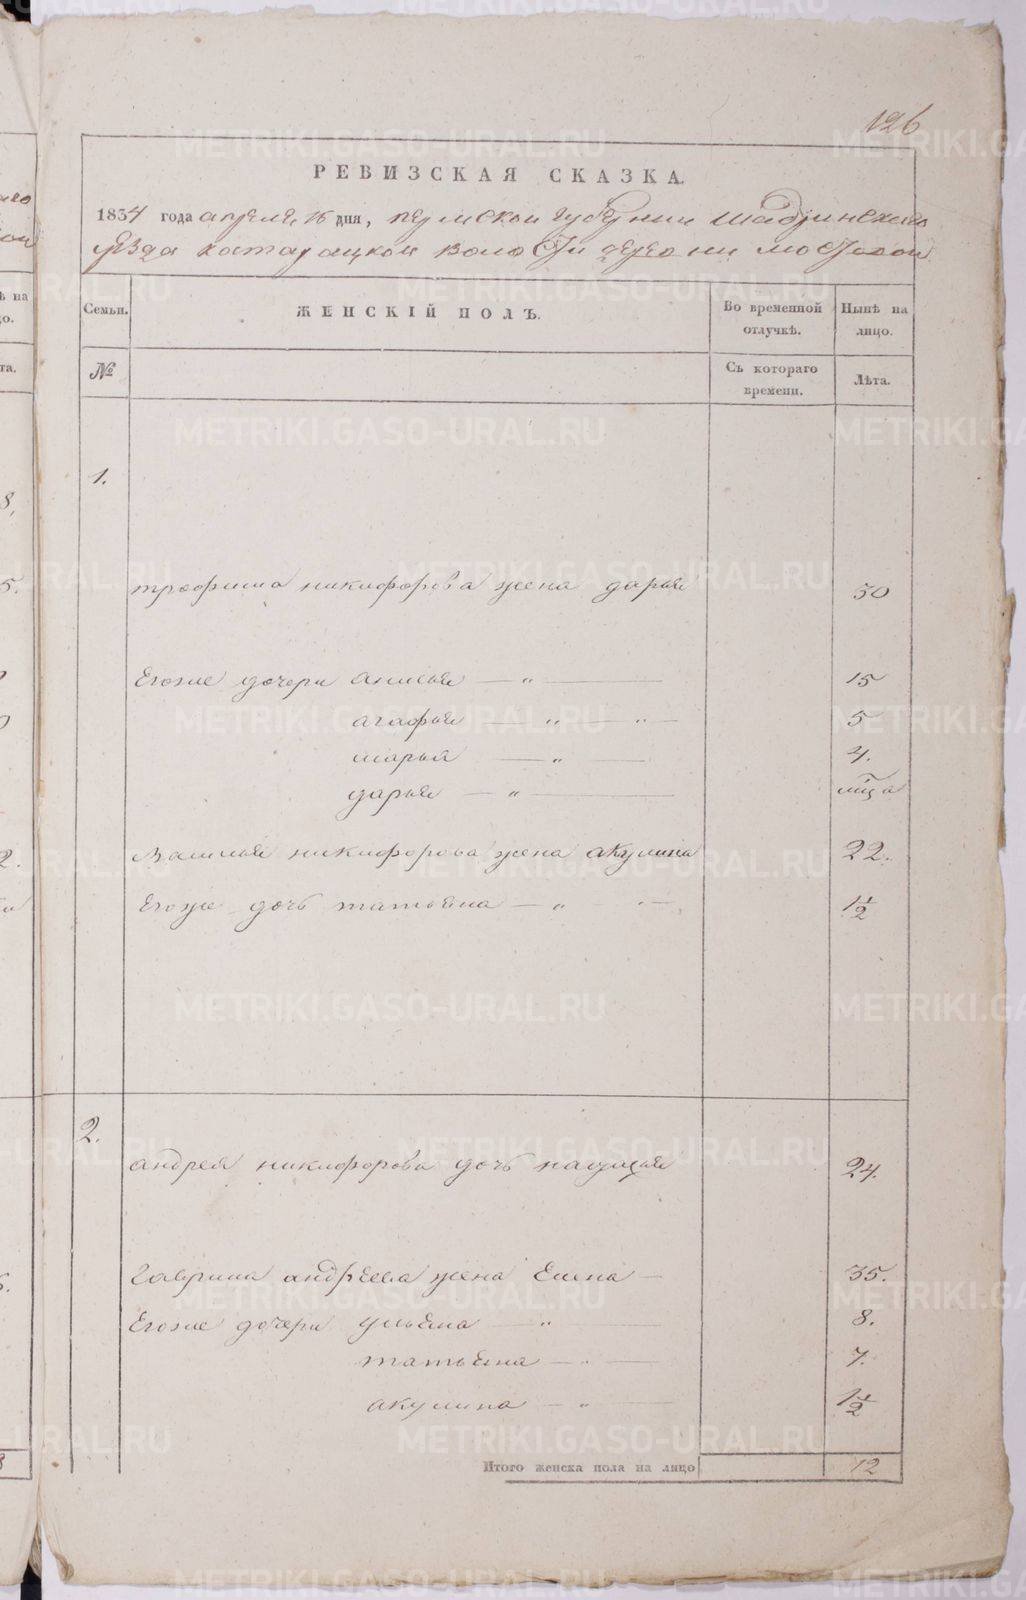 126
РЕВИЗСКАЯ СКАЗКА.
1834 года апреля 16 дня, пермской губернии шадринского
уезда катарацкой волости деревни мостовой
Семьи. ЖЕНСКІЙ ПОЛЪ. Во временной отлучкѣ. Нынѣ на лицо.
№ Съ котораго времени. Лѣта.
1.
трофима никифорова жена дарья 50
Егоже дочери анисья — „ — 15
агафья — „ — „ — 5
марья — „ — 4.
дарья — „ —
Василья никифорова жена акулина 22.
Егоже дочь татьяна — „ — 1½
2.
андрея никифорова дочь 24.
Гаврила андреева жена Елена — 35.
Егоже дочери ульяна — „ — 8.
татьяна — „ — 7.
акулина — „ — 1½
Итого женска пола на лицо 12
METRIKI.GASO-URAL.RU